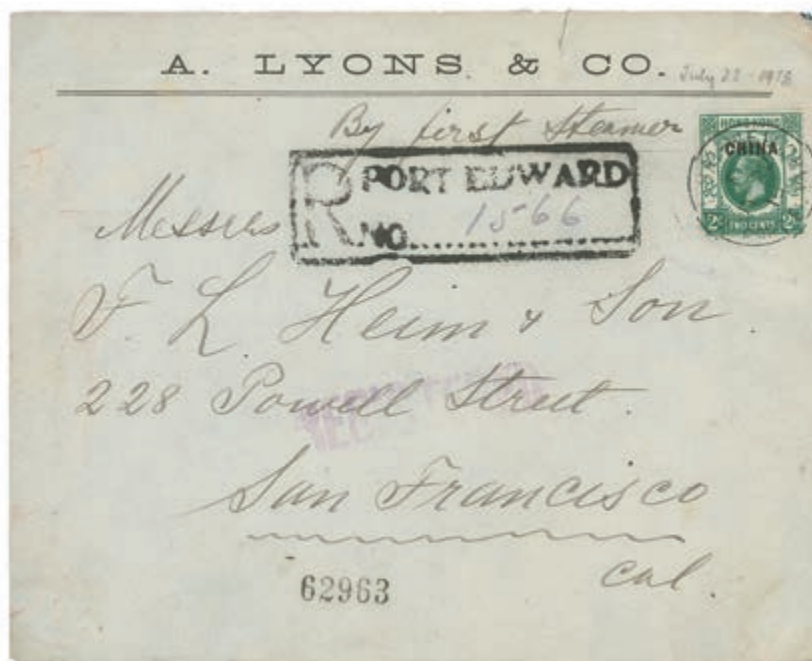 A. LYONS & CO.
July 22 - 1918
By first Steamer
HONG KONG
CHINA
2c TWO CENTS 2c
R PORT EDWARD
NO. 1566
Messrs
F. L. Heim & Son
228 Powell Street.
REGISTERED
San Francisco
Cal.
62963